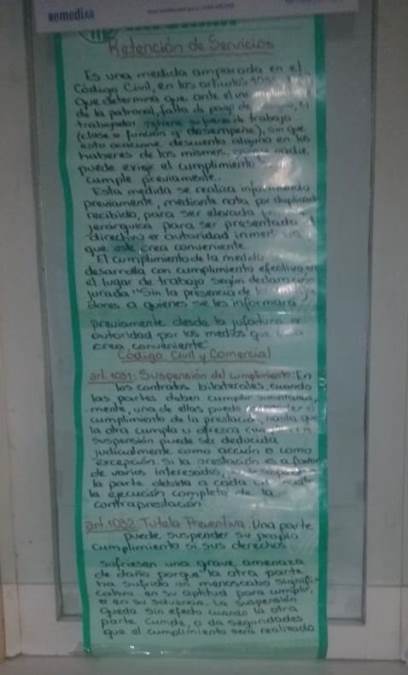 Remediar
Retención de Servicios
Es una medida amparada en el
Código Civil, en los artículos 1031
que determina que ante el
de la patronal, falta de pago de el
trabajador retiene su trabajo
(clase o función q' desempeñe), sin que
esto ocasione descuento alguno en los
haberes de los mismos,
puede exigir el cumplimiento
cumple previamente.
Esta medida se realiza informando
previamente, mediante nota por duplicado
recibido, para ser elevada
jerárquica para ser presentada
directivo o autoridad
que este crea conveniente
El cumplimiento de la medida
desarrolla con cumplimiento efectivo en
el lugar de trabajo según declaración
jurada "Sin la presencia de
a quienes se les informará
previamente desde la jefatura o
autoridad por los medios que
crea conveniente"
Código Civil y Comercial
art. 1031: Suspensión del cumplimiento: En
los contratos bilaterales, cuando
las partes deben cumplir
mente, una de ellas puede
cumplimiento de la prestación, hasta que
la otra cumpla u ofrezca
suspensión puede ser deducida
judicialmente como acción o como
excepción. Si la prestación es a favor
de varios interesados,
la parte debida a cada
la ejecución completa de la
contraprestación
art. 1032: Tutela Preventiva: Una parte
puede suspender su propio
cumplimiento si sus derechos
sufriesen una grave amenaza
de daño porque la otra parte
ha sufrido un menoscabo signifi-
cativo en su aptitud para cumplir,
o en su solvencia. La suspensión
queda sin efecto cuando la otra
parte cumple, o da seguridades
que el cumplimiento será realizado